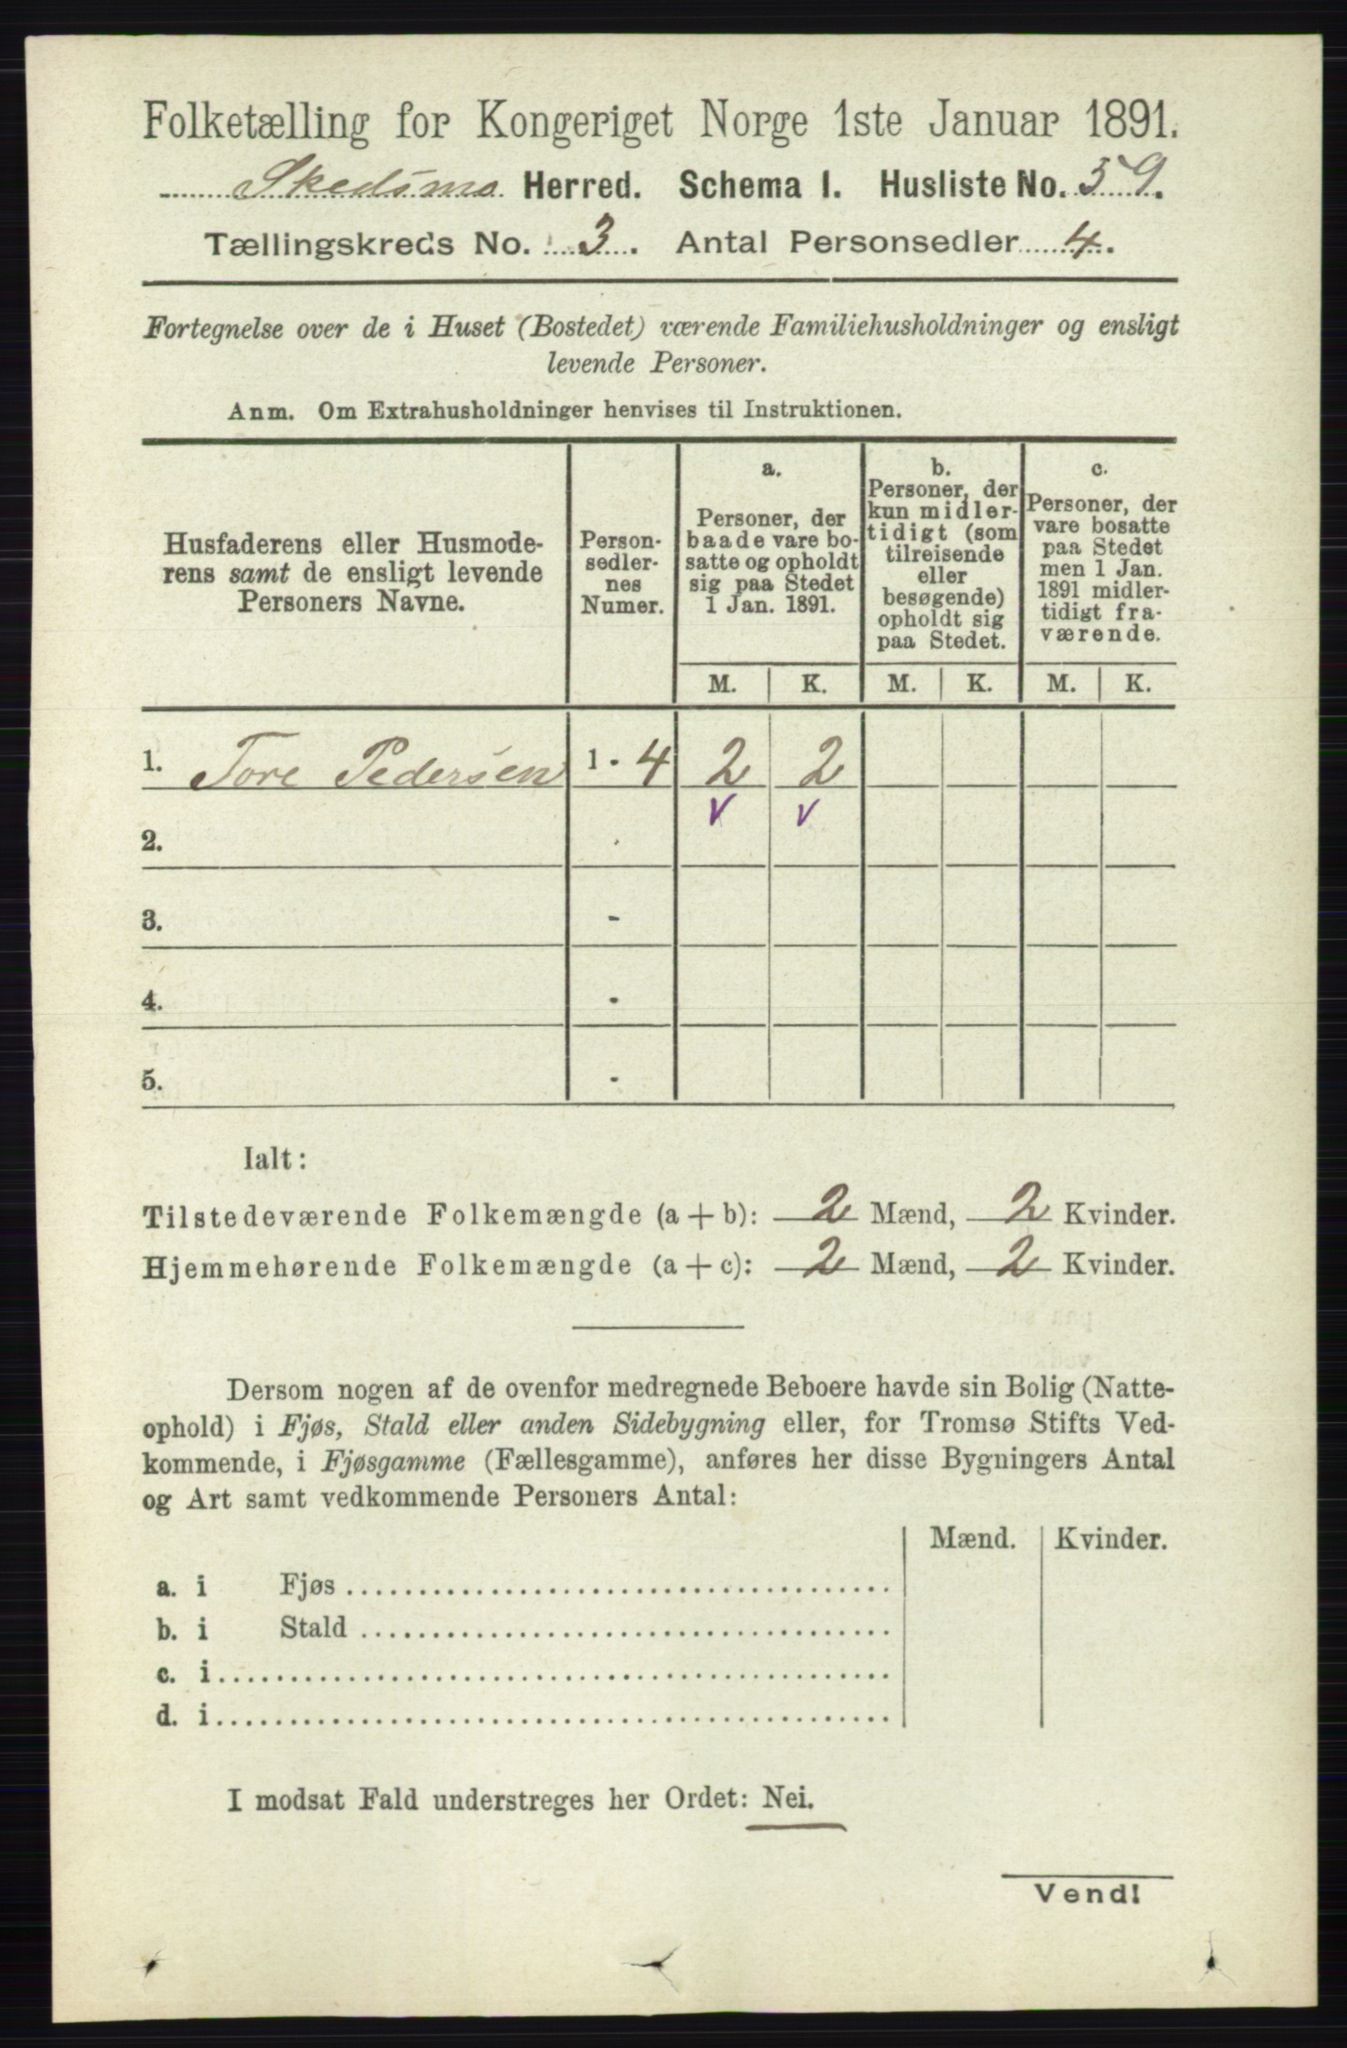 Folketælling for Kongeriget Norge 1ste Januar 1891.
Skedsmo Herred. Schema I. Husliste No. 59.
Tællingskreds No. 3. Antal Personsedler 4.
Fortegnelse over de i Huset (Bostedet) værende Familiehusholdninger og ensligt
levende Personer.
Anm. Om Extrahusholdninger henvises til Instruktionen.
Husfaderens eller Husmode-
rens samt de ensligt levende
Personers Navne.
Person-
sedler-
nes
Numer.
a.
Personer, der
baade vare bo-
satte og opholdt
sig paa Stedet
1 Jan. 1891.
b.
Personer, der
kun midler-
tidigt (som
tilreisende
eller
besøgende)
opholdt sig
paa Stedet.
c.
Personer, der
vare bosatte
paa Stedet
men 1 Jan.
1891 midler-
tidigt fra-
værende.
M. K. M. K. M. K.
1. Tore Pedersen 1 - 4 2 2
v v
2. -
3. -
4. -
5. -
Ialt:
Tilstedeværende Folkemængde (a + b): 2 Mænd, 2 Kvinder.
Hjemmehørende Folkemængde (a + c): 2 Mænd, 2 Kvinder.
Dersom nogen af de ovenfor medregnede Beboere havde sin Bolig (Natte-
ophold) i Fjøs, Stald eller anden Sidebygning eller, for Tromsø Stifts Ved-
kommende, i Fjøsgamme (Fællesgamme), anføres her disse Bygningers Antal
og Art samt vedkommende Personers Antal:
Mænd. Kvinder.
a. i Fjøs
b. i Stald
c. i
d. i
I modsat Fald understreges her Ordet: Nei.
Vend!